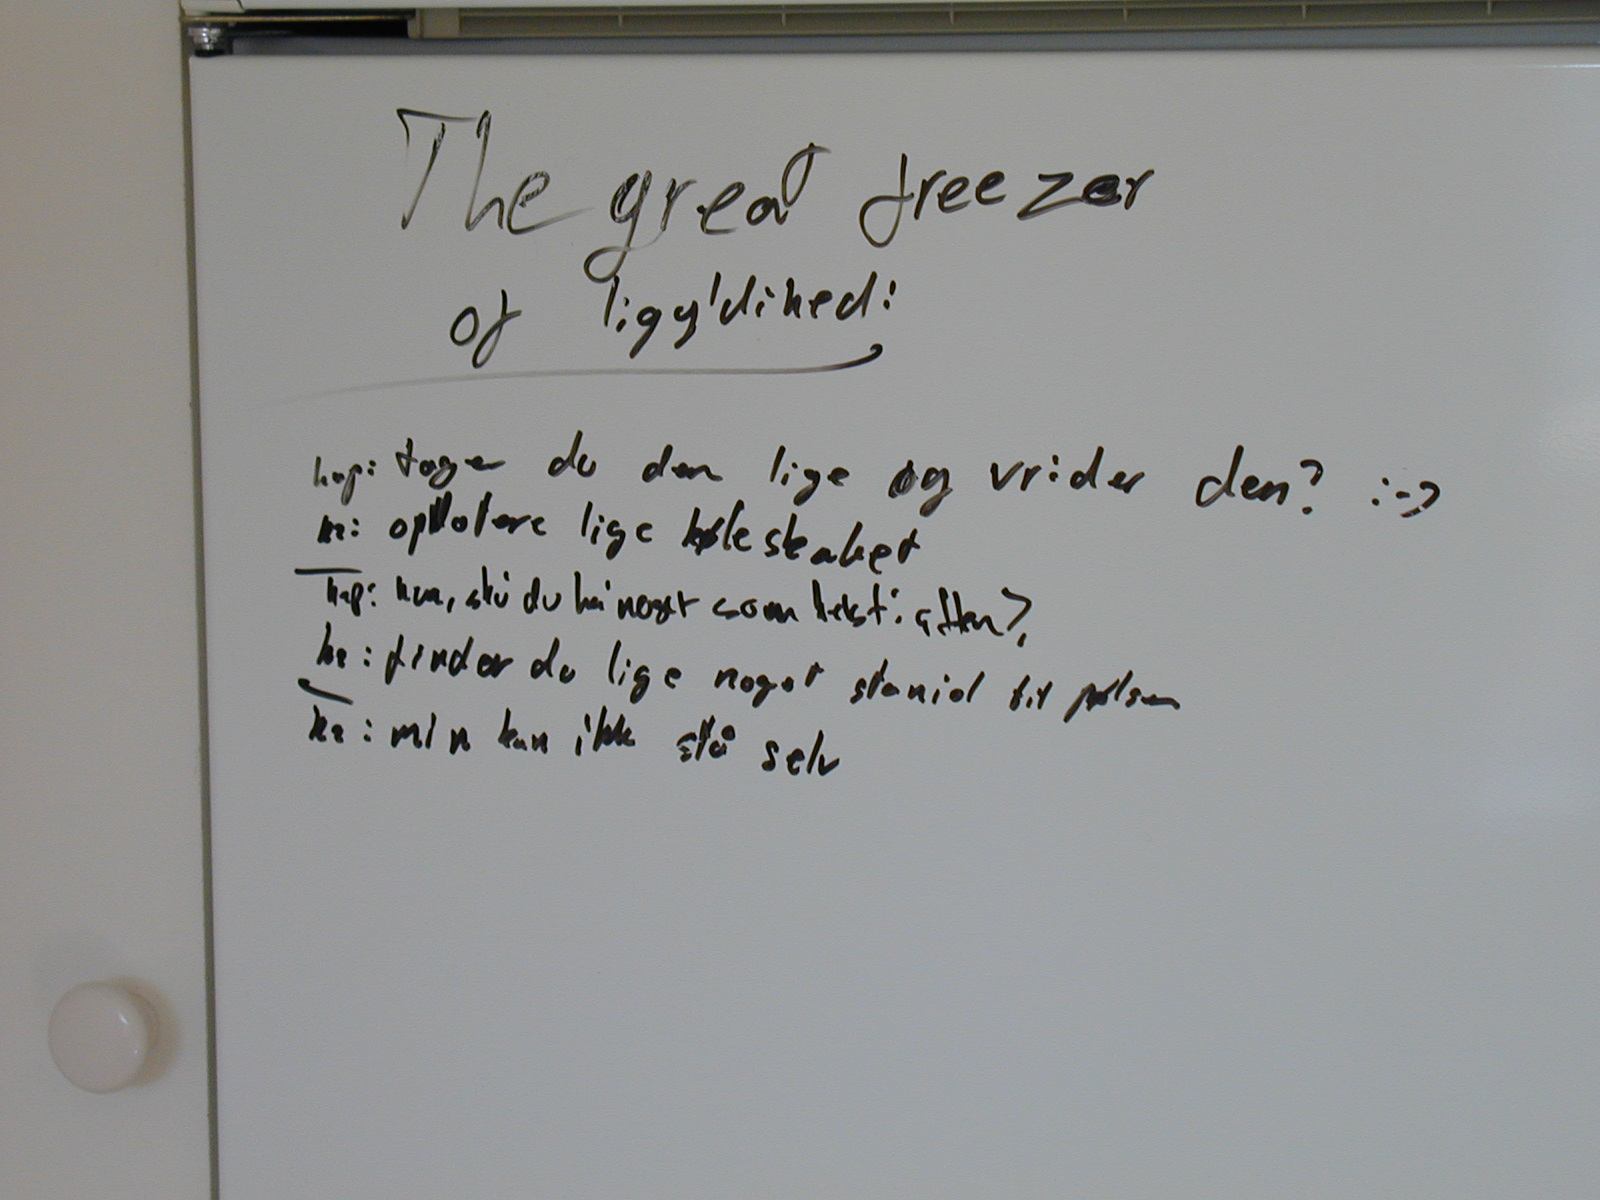 The great freezer
of ligy'dihed:
hap: tager du den lige og vrider den? :->
opdatere lige køleskabet
hap: skü du ha noget som helst i aften?
finder du lige noget staniol til pølsen
min kan ikk stå selv